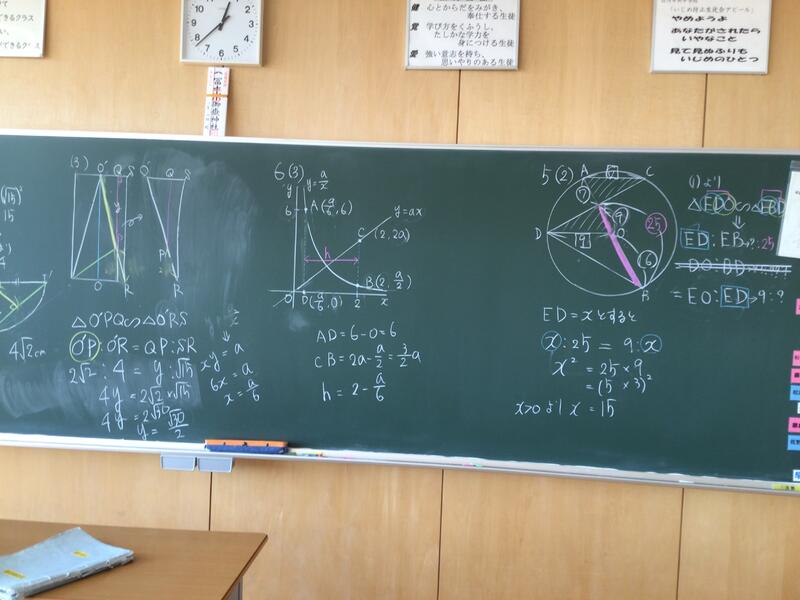 できるクラス
健 心とからだをみがき、
奉仕する生徒
覚 学び方をくふうし、
たしかな学力を
身につける生徒
愛 強い意志を持ち、
思いやりのある生徒
「いじめ防止生徒会アピール」
やめようよ
あなたがされたら
いやなこと
見て見ぬふりも
いじめのひとつ
4√2cm
(3)
O' Q S
O' Q S
y
P
R
R
△O'PQ∽△O'RS
O'P:O'R=QP:SR
2√2:4=y:√15
4y=2√2×√15
4y=2√30
y=√30/2
6(3)
y
y=a/x
6
A(a/6,6)
y=ax
C
(2,2a)
h
B(2,a/2)
O
D(a/6,0)
2
x
xy=a
6x=a
x=a/6
AD=6-0=6
CB=2a-a/2=3/2a
h=2-a/6
5(2)
A
C
7
9
25
D
O
6
B
ED=xとすると
x:25=9:x
x²=25×9
=(5×3)²
x>0より x=15
(1)より
△EDO∽△EBD
ED:EB→?:25
DO:BD→?:?
=EO:ED→9:?